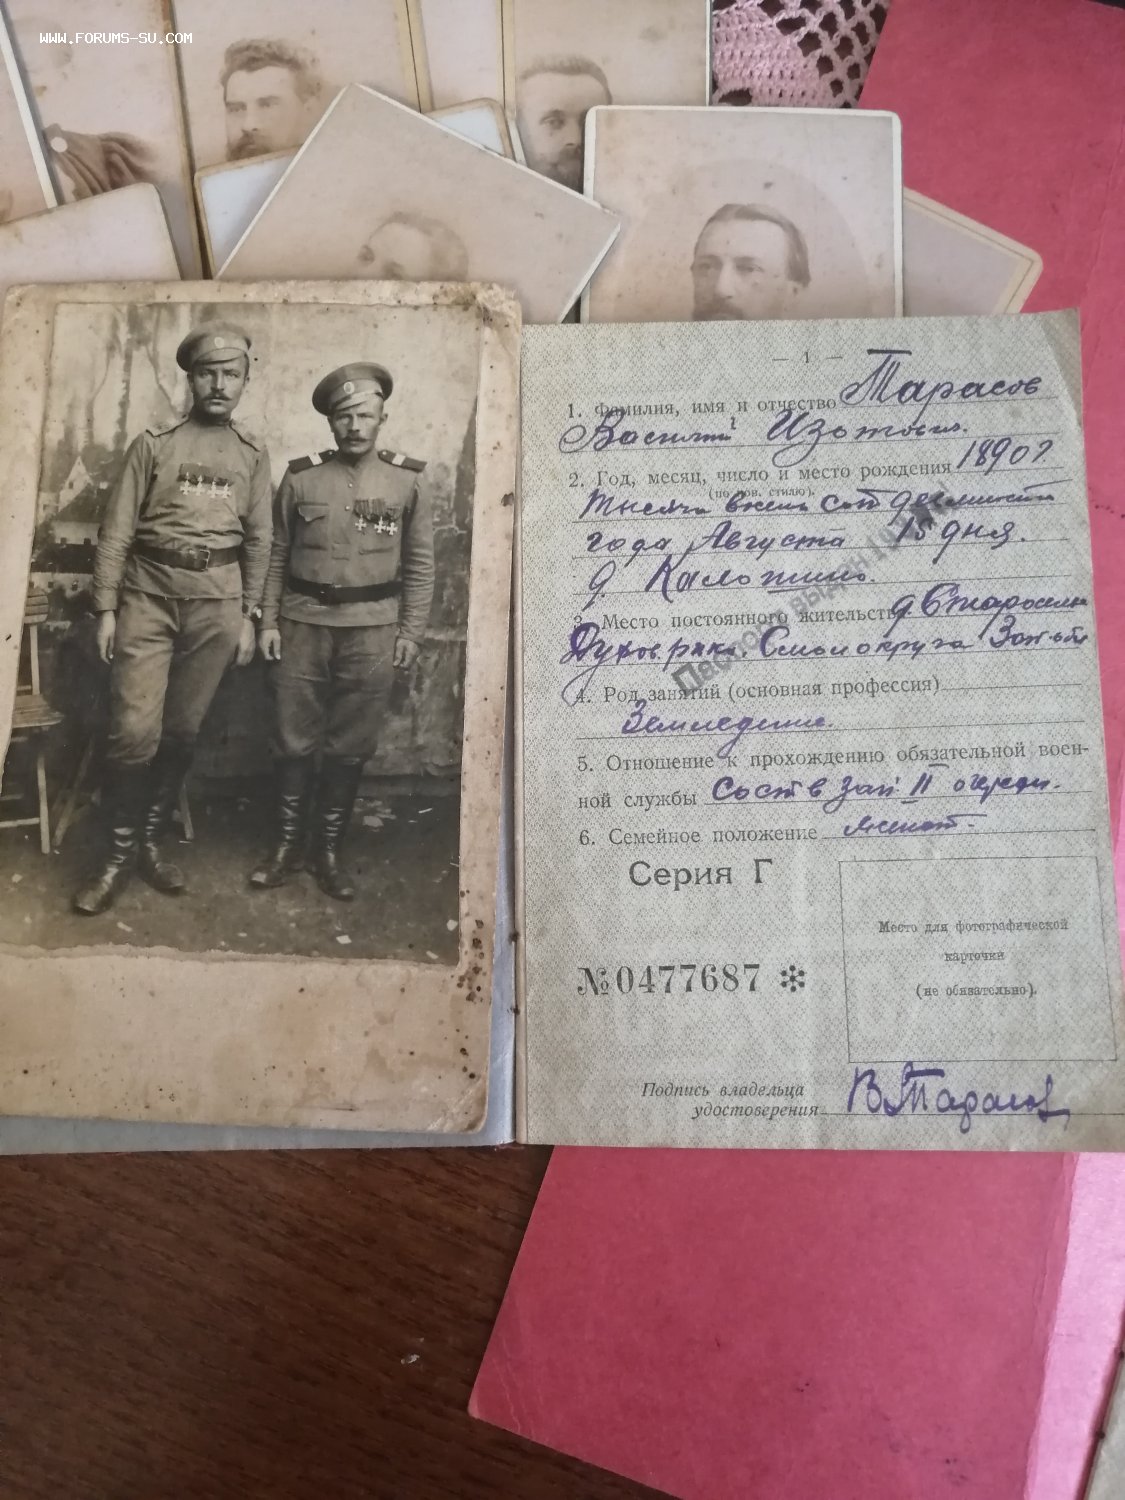 WWW.FORUMS-SU.COM
— 1 —
1. Фамилия, имя и отчество Тарасов
Василий Изотович.
2. Год, месяц, число и место рождения 1890 г
(по нов. стилю).
Тысяча восем сот девяносто
года Августа 15 дня.
д.
3. Место постоянного жительства д
Духов района. Смол округа Зап. обл
Паспорт выдан
4. Род занятий (основная профессия)
Земледелие.
5. Отношение к прохождению обязательной воен-
ной службы Сост в зап II очереди.
6. Семейное положение женат.
Серия Г
№ 0477687 ✻
Место для фотографической
карточки
(не обязательно).
Подпись владельца
удостоверения В Тарасов